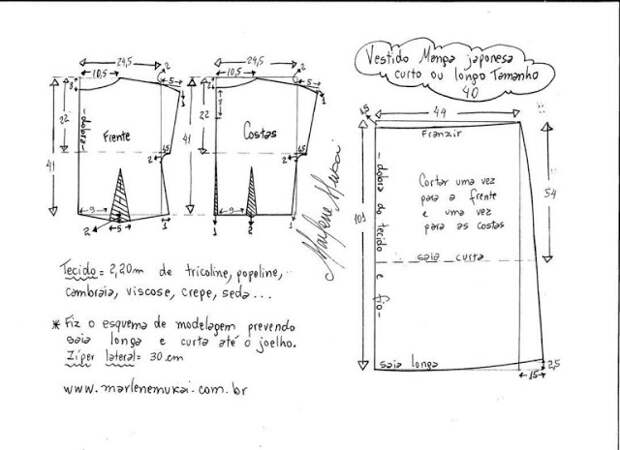 Vestido Manga japonesa
curto ou longo Tamanho
40
24,5
2
10,5
5
3
1
22
41
dobra
Frente
2
1,5
9
5
2
1
24,5
2
10,5
5
1
22
41
Costas
2
1,5
9
1
2
1
Marlene Mukai
1,5
44
Franzir
101
dobra do tecido e fio
Cortar uma vez
para a frente
e uma vez
para as costas
54
saia curta
saia longa
15
2,5
Tecido = 2,20m de tricoline, popeline,
cambraia, viscose, crepe, seda...
* Fiz o esquema de modelagem prevendo
saia longa e curta até o joelho.
Zíper lateral = 30 cm
www.marlenemukai.com.br